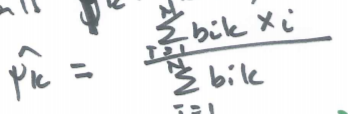 μ̂k = Σ_{i=1}^{N} bik xi / Σ_{i=1}^{N} bik